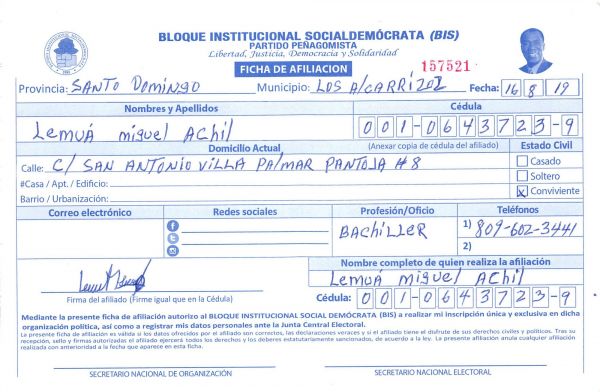 BLOQUE INSTITUCIONAL SOCIALDEMÓCRATA (BIS)
PARTIDO PEÑAGOMISTA
Libertad, Justicia, Democracia y Solidaridad
FICHA DE AFILIACION
157521
Provincia: SANTO DOMINGO Municipio: LOS ALCARRIZOZ Fecha: 16 8 19
Nombres y Apellidos Cédula
Lemuá miguel AChil 001-0643723-9
Domicilio Actual (Anexar copia de cédula del afiliado) Estado Civil
Calle: C/ SAN ANTONIO VILLA PALMAR PANTOJA #8
Casado
#Casa / Apt. / Edificio:
Soltero
Barrio / Urbanización:
X Conviviente
Correo electrónico Redes sociales Profesión/Oficio Teléfonos
BAChiLLER 1) 809-602-3441
2)
Nombre completo de quien realiza la afiliación
Lemuá miguel AChil
Firma del afiliado (Firme igual que en la Cédula)
Cédula: 001-0643723-9
Mediante la presente ficha de afiliación autorizo al BLOQUE INSTITUCIONAL SOCIAL DEMÓCRATA (BIS) a realizar mi inscripción única y exclusiva en dicha
organización política, así como a registrar mis datos personales ante la Junta Central Electoral.
La presente ficha de afiliación es válida si los datos ofrecidos por el afiliado son correctos, las declaraciones veraces y si el titular tiene el disfrute de sus derechos civiles y políticos. Tras su
recepción, sello y firmas autorizadas el afiliado ejercerá todos los derechos y los deberes estatutariamente sancionados, de acuerdo a la ley. La presente afiliación anula cualquier afiliación
realizada con anterioridad a la fecha que aparece en esta ficha.
SECRETARIO NACIONAL DE ORGANIZACIÓN SECRETARIO NACIONAL ELECTORAL